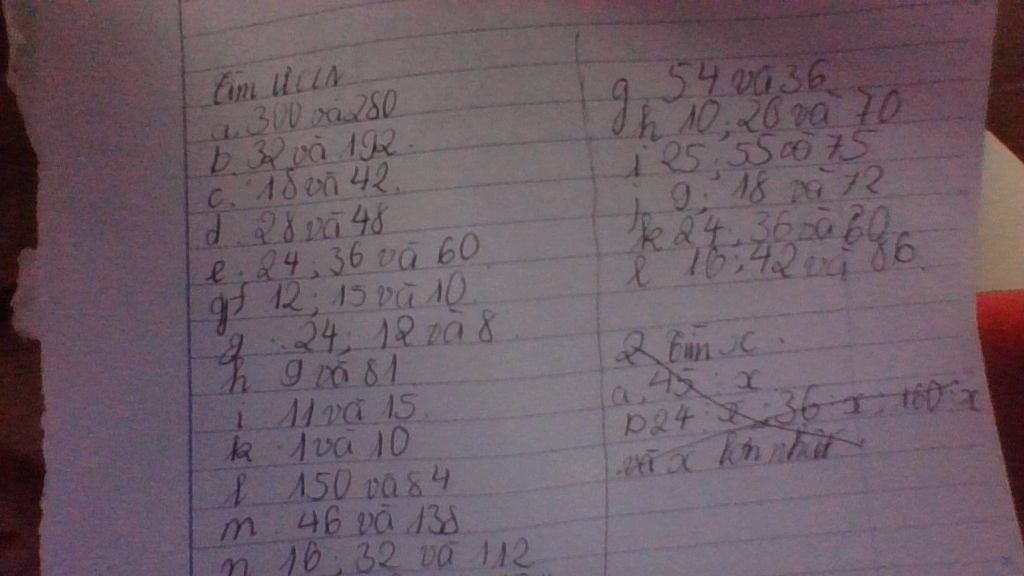 tìm ƯCLN
a. 300 và 280
b. 32 và 192.
c. 18 và 42.
d. 28 và 48
e. 24 ; 36 và 60
f 12 ; 15 và 10
g. 24 ; 12 và 8
h 9 và 81
i 11 và 15
k 1 và 10
l 150 và 84
m 46 và 138
n 16 ; 32 và 112
g 54 và 36
h 10 ; 20 và 70
i 25 ; 55 và 75
j 9 ; 18 và 72
k 24 ; 36 và 60
l 16 ; 42 và 86.
2 tìm x.
a, 45 : x
b 24 : x ; 36 : x ; 160 : x
và x lớn nhất